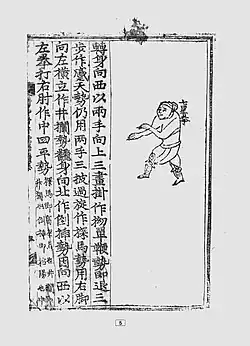 轉身向西以兩手向上三畫掛作拗單鞭勢即退三
步作天勢仍用兩手三披過旋作探馬勢用右脚
向左橫立作井攔勢飜身向北作倒揷勢因向西以
左拳打右肘作中四平勢
5